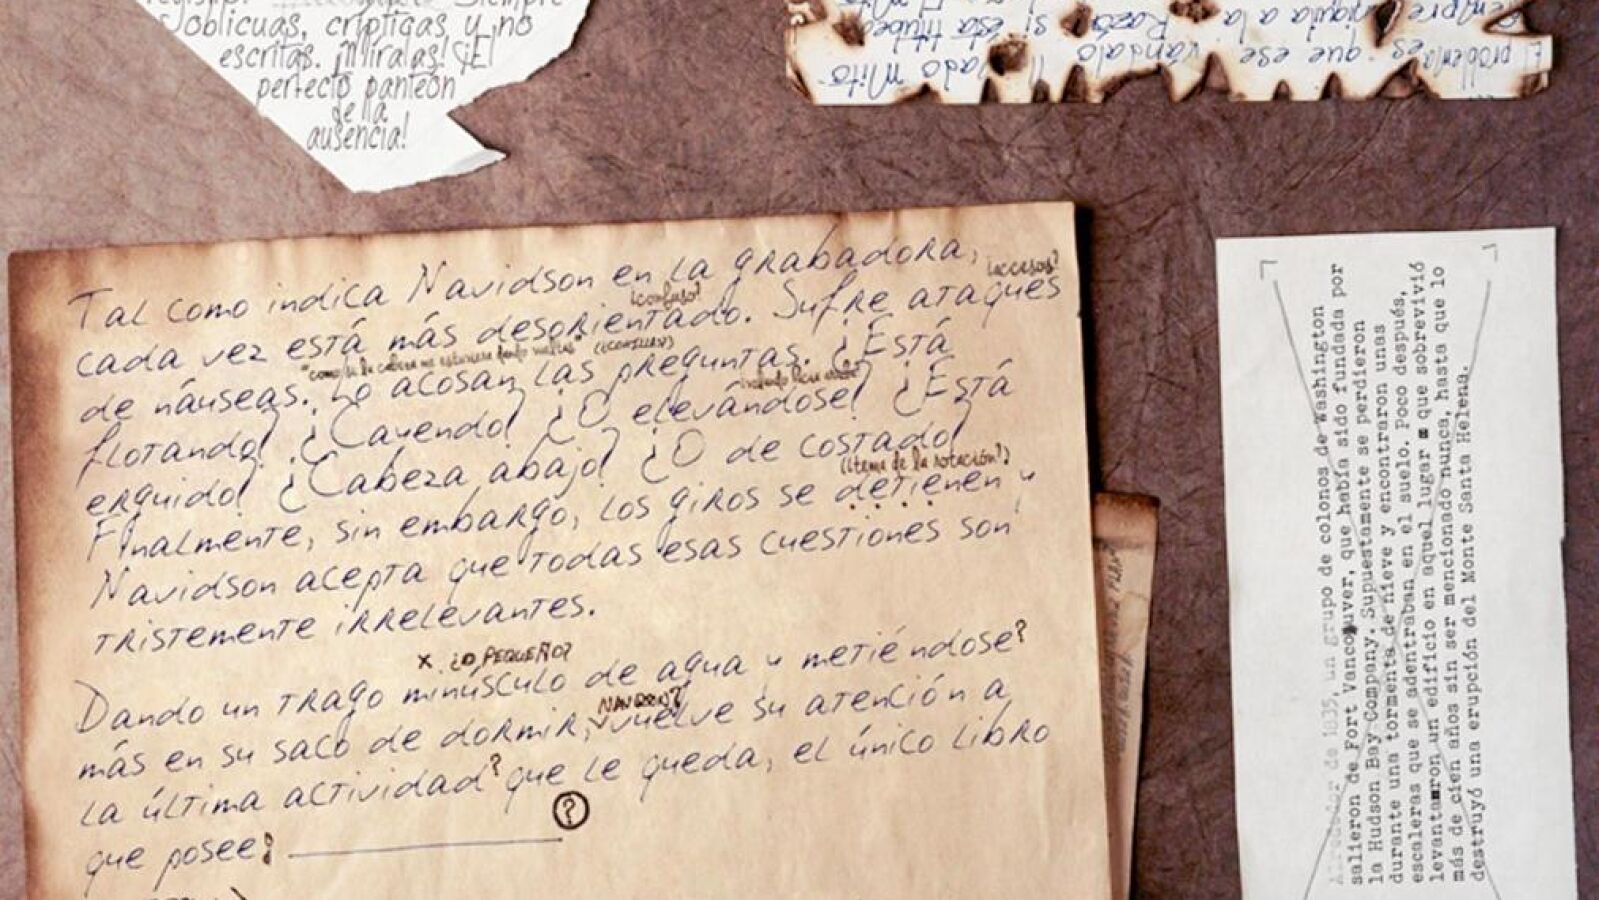 Siempre
oblicuas, crípticas y no
escritas. ¡Miralas! ¡El
perfecto panteón
de la
ausencia!
El problema es que ese vándalo llamado Mito
siempre a la Razón si esta titubea
Tal como indica Navidson en la grabadora,
¿accesos?
¿confuso?
cada vez está más desorientado. Sufre ataques
"como si la cabeza me estuviera dando vueltas"
de náuseas. Lo acosan las preguntas. ¿Está
flotando? ¿Cayendo? ¿O elevándose? ¿Está
erguido? ¿Cabeza abajo? ¿O de costado?
(¿tema de la rotación?)
Finalmente, sin embargo, los giros se detienen y
Navidson acepta que todas esas cuestiones son
tristemente irrelevantes.
x ¿O PEQUEÑO?
Dando un trago minúsculo de agua y metiéndose?
más en su saco de dormir, vuelve su atención a
la última actividad? que le queda, el único libro
que posee: ?
Alrededor de 1835, un grupo de colonos de Washington
salieron de Fort Vancouver, que había sido fundada por
la Hudson Bay Company. Supuestamente se perdieron
durante una tormenta de nieve y encontraron unas
escaleras que se adentraban en el suelo. Poco después,
levantaron un edificio en aquel lugar que sobrevivió
más de cien años sin ser mencionado nunca, hasta que lo
destruyó una erupción del Monte Santa Helena.